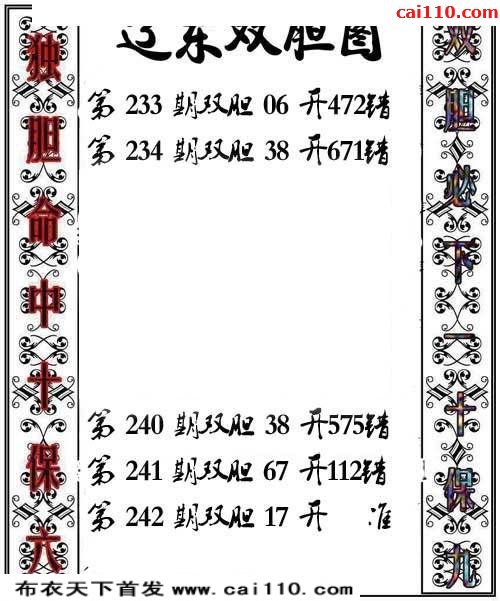 彩彩网 cai110.com
辽东双胆图
第 233 期双胆 06 开472错
第 234 期双胆 38 开671错
第 240 期双胆 38 开575错
第 241 期双胆 67 开112错
第 242 期双胆 17 开 准
独胆命中十保六
双胆必下一十保九
布衣天下首发 www.cai110.com